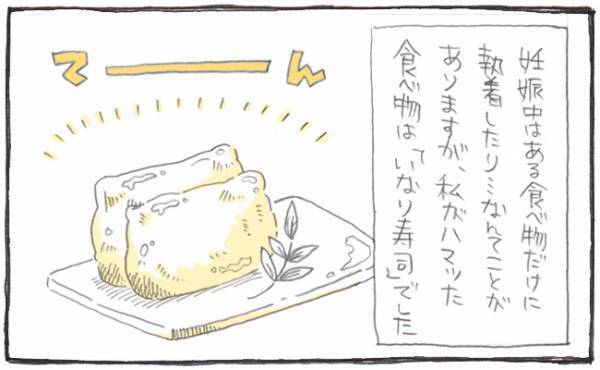 妊娠中はある食べ物だけに
執着したり…なんてことが
ありますが、私がハマッた
食べ物は「いなり寿司」でした
てーん